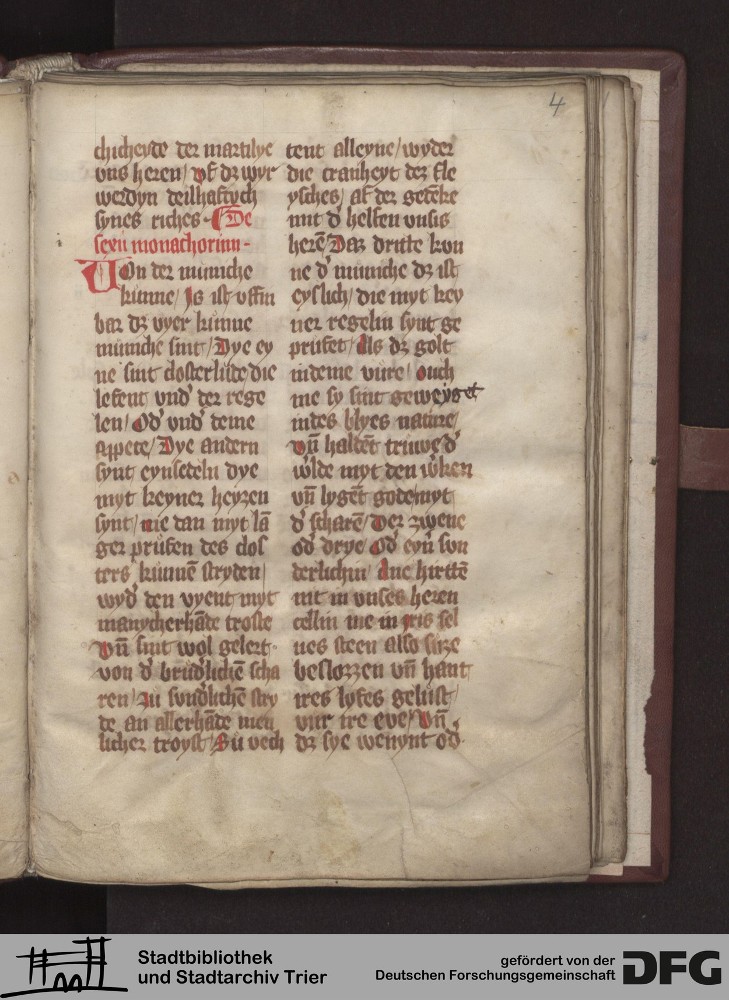 4
chicheyde der martilye
vns heren / vf dz wyr
werdyn deilhaftych
synes riches · De
sexu monachorum -
Von der municke
kunne / Is ist vffin
bar dz vyer kunne
municke sint / Dye ey
ne sint closterlude die
lebent vnd' der rege
len / Od' vnd' deme
appete / Dye andern
synt eynsedeln dye
myt keyner heyzen
synt / nie dan myt lā
ger prufen des clos
ters kunnē stryden /
wyd' den vyent myt
manycherhāde troste
Vn̄ sint wol gelert ·
von d' brud'lichē scha
ren / zu sund'lichē stry
de an allerhāde men
licher troyst / Su vech
tent alleyne / wyder
die cranheyt dez fle
ysches / Af der getēke
mit d' helfen vnsis
herē Daz dritte kon
ne d' municke dz ist
eyslich / die myt key
ner regelin synt ge
prufet / Als dz golt
indeme vure / ouch
me sy sint geweyget
indes blyes nature /
vn̄ haldēt truwe d'
w'lde myt den w'ken
vn̄ lygēt gode myt
d' scharē / Der zwene
od' drye / Od' eyn' son
derlichin / Ane hirttē
nit in vnses heren
cellin me in yris sel
ues steen also sure
beslozzen vn̄ hant
ires lybes gelust /
vur ire eve / Vn̄
dz sye wenynt od'
Stadtbibliothek
und Stadtarchiv Trier
gefördert von der
Deutschen Forschungsgemeinschaft
DFG